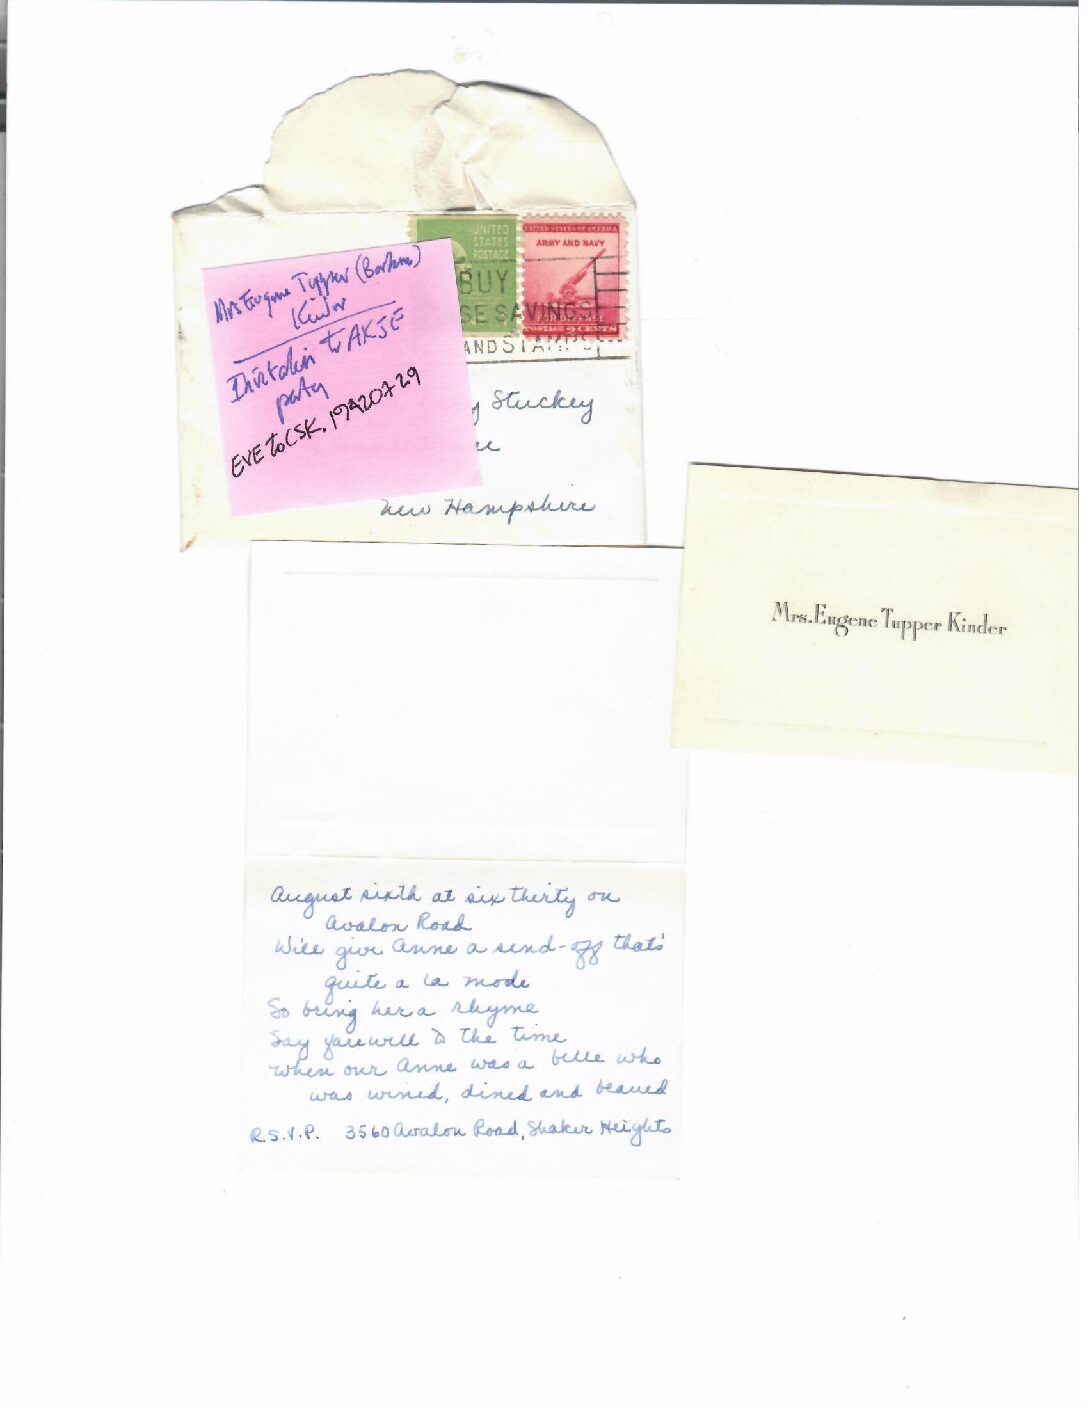 UNITED
STATES
POSTAGE
UNITED STATES OF AMERICA
ARMY AND NAVY
FOR DEFENSE
POSTAGE 2 CENTS
BUY
SE SAVINGS
AND STAMPS
Mrs Eugene Tupper (Barbara)
Kinder
Invitation to AKSE
party
EVE to CSK, 19420729
y Stuckey
New Hampshire
Mrs. Eugene Tupper Kinder
August sixth at six thirty on
Avalon Road
Will give Anne a send-off that's
quite a la mode
So bring her a rhyme
Say farewell to the time
When our Anne was a belle who
was wined, dined and beaued
R.S.V.P. 3560 Avalon Road, Shaker Heights